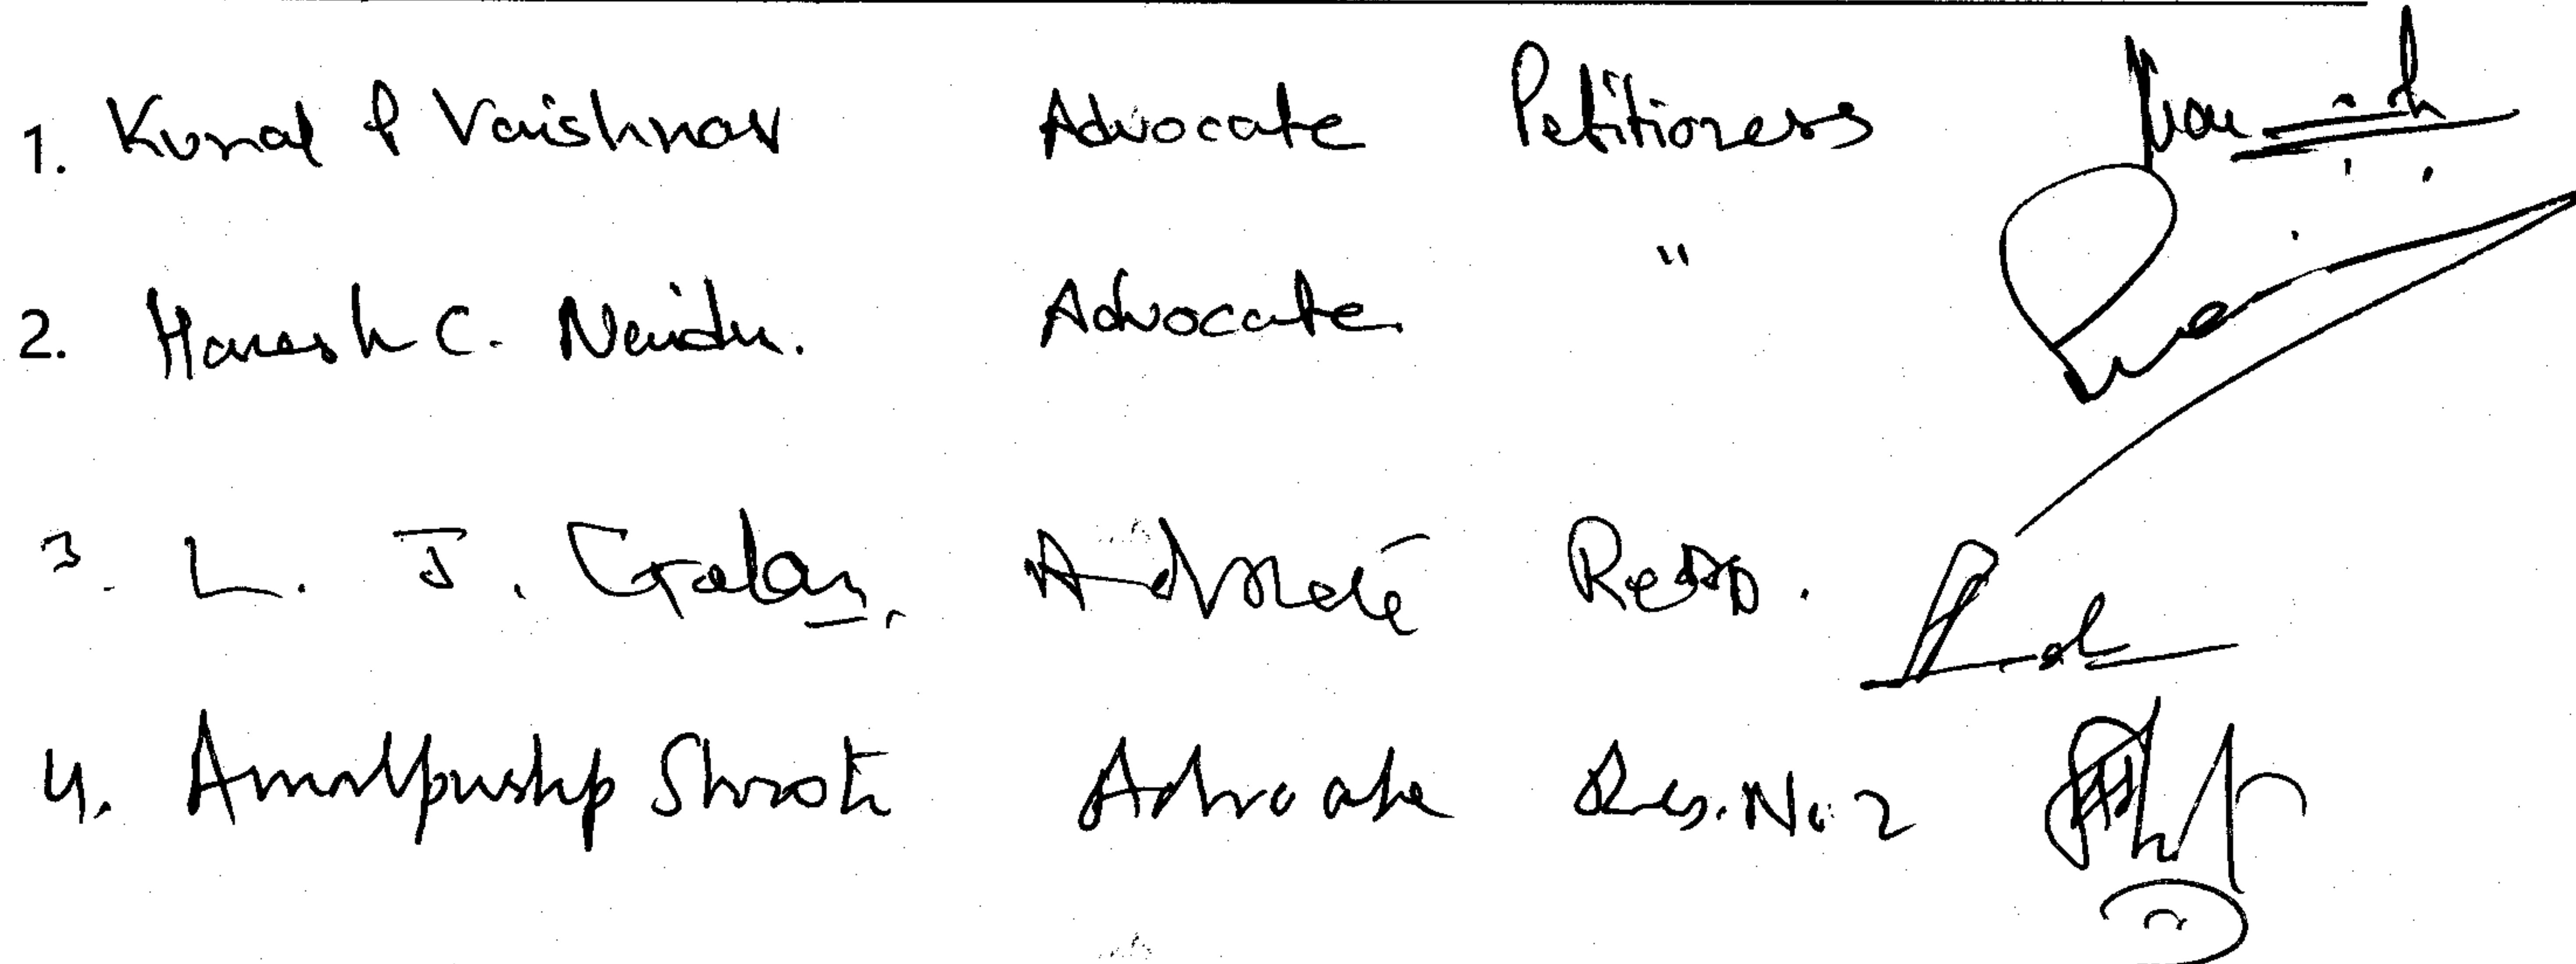 1. Kunal P Vaishnav Advocate Petitioners
2. Haresh C. Naidu. Advocate "
3. L. J. Advocate Resp.
4. Amalpushp Shroti Advocate Res. No. 2